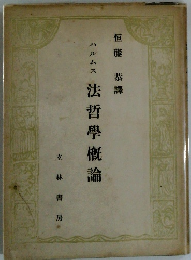 恒藤 恭譯
ハルムス
法哲學概論
立林書房